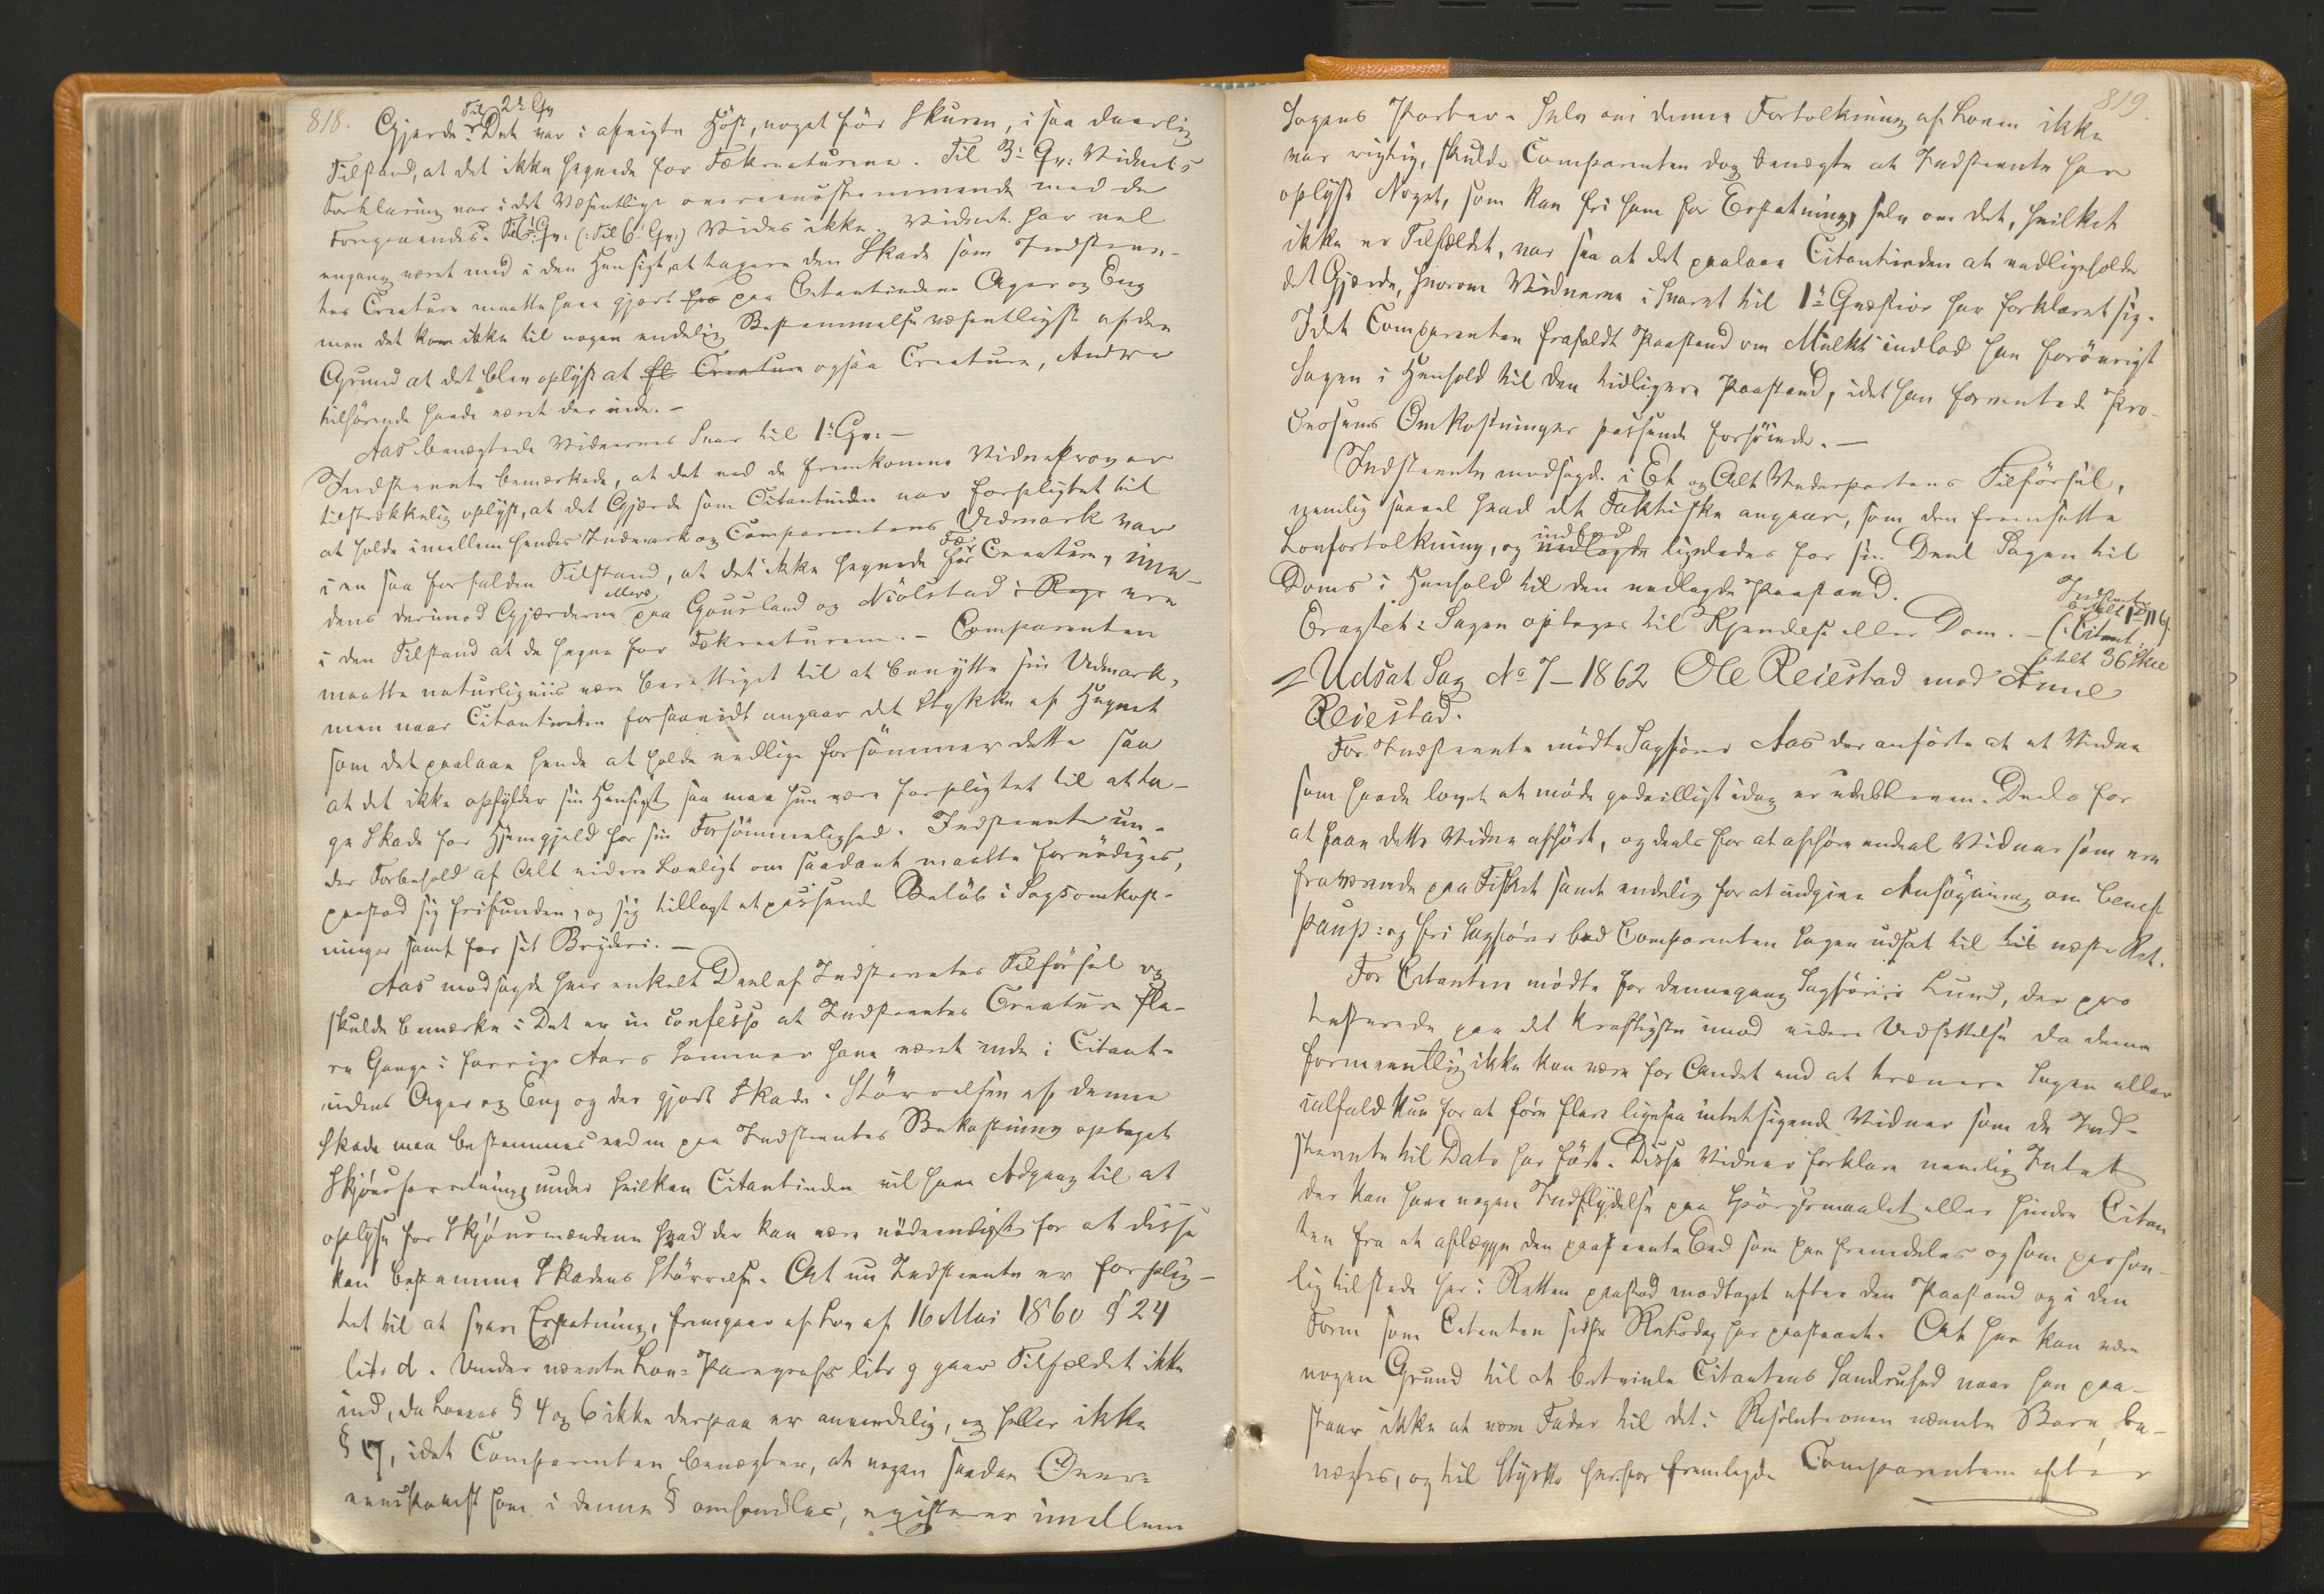 818.
Til 2d Qv
Gjærde. Det var i afvigte Høst, noget før Skuren, i saa daarlig
Tilstand, at det ikke hegnede for Fækreaturene. Til 3die Qv: Vidnets
Forklaring var i det Væsentlige overeensstemmende med de
Foregaaendes. Til Qv. (: Til 6t Qv:) Vides ikke. Vidnet har vel
engang været med i den Hensigt, at taxere den Skade som Indstævn-
tes Creature maatte have gjort paa Citantindens Ager og Eng
men det kom ikke til nogen endelig Bestemmelse væsentligst af den
Grund at det blev oplyst at fl Creature ogsaa Creature, Andre
tilhørende havde været der inde. -
Aas benægtede Vidnernes Svar til 1st Qv. -
Indstævnte bemærkede, at det ved de fremkomne Vidneprov er
tilstrækkelig oplyst, at det Gjærde som Citantinden var forpligtet til
at holde imellem hendes Indmark og Comparentens Udmark var
i en saa forfalden Tilstand, at det ikke hegnede for Fæ Creature, ime-
dens derimod Gjærderne ellers paa Gausland og Njølstad i Rege ere
i den Tilstand at de hegne for Fækreaturene. - Comparenten
maatte naturligviis være berettiget til at benytte sin Udmark,
men naar Citantinden forsaavidt angaar det Stykke af Hegnet
som det paalaae hende at holde vedlige forsømmer dette saa
at det ikke opfylder sin Hensigt saa maa hun være forpligtet til at ta-
ge Skade for Hjemgjeld for sin Forsømmelighed. Indstævnte un-
der Forbehold af Alt videre Lovligt om saadant maatte fornødiges,
paastod sig frifunden, og sig tillagt et passende Beløb i Sagsomkost-
ninger samt for sit Bryderi. -
Aas modsagde hver enkelt Deel af Indstævntes Tilførsel og
skulde bemærke: Det er in confesso at Indstævntes Creature fle-
re Gange i forrige Aars Sommer have været inde i Citant-
indens Ager og Eng og der gjort Skade. Størrelsen af denne
Skade maa bestemmes ved en paa Indstævntes Bekostning optaget
Skjønsforretning, under hvilken Citantinden vil have Adgang til at
oplyse for Skjønsmændene hvad der kan være nødvendigt for at disse
kan bestemme Skadens Størrelse. At nu Indstævnte er forplig-
tet til at svare Erstatning, fremgaar af Lov af 16 Mai 1860 § 24
litr d. Under nævnte Lov-Paragrafs litr g gaar Tilfældet ikke
ind, da Lovens § 4 og 6 ikke derpaa er anvendelig, og heller ikke
§ 17, idet Comparenten benægter, at nogen saadan Overe
eenskomst som i denne § omhandles, existerer imellem
819.
Sagens Parter. Selv om denne Fortolkning af Loven ikke
var rigtig, skulde Comparenten dog benægte at Indstævnte har
oplyst Noget, som kan fri ham for Erstatning, selv om det, hvilket
ikke er Tilfældet, var saa at det paalaae Citantinden at vedligeholde
det Gjærde, hvorom Vidnerne i Svaret til 1st Qvæstion har forklaret sig.
Idet Comparenten frafaldt Paastand om Mulkt indlod han forøvrigt
Sagen i Henhold til den tidligere Paastand, idet han formentede Pro-
cessens Omkostninger passende forhøiede. -
Indstævnte modsagde i Et og Alt Vederpartens Tilførsel,
nemlig saavel hvad det Faktiske angaar, som den fremsatte
Lovfortolkning, og indlod nedlagde ligeledes for sin Deel Sagen til
Doms i Henhold til den nedlagde Paastand.
Eragtet: Sagen optages til Kjendelse eller Dom. -
Indstevte
betalt 1 - 116
(: Citant.
betalt 36 Sk
Udsat Sag No 7 - 1862 Ole Reiestad mod Anne
Reiestad.
For Indstævnte mødte Sagfører Aas der anførte at et Vidne
som havde lovet at møde godvilligt idag er udebleven. Deels for
at faae dette Vidne afhørt, og deels for at afhøre endeel Vidner som ere
fraværende paa Fisket samt endelig for at indgive Ansøgning om benef
paup: og fri Sagfører bad Comparenten Sagen udsat til til næste Ret.
For Citanten mødte for dennegang Sagfører Lund, der pro
testerede paa det Kraftigste imod videre Udsættelse da denne
formeentlig ikke kan være for Andet end at trænere Sagen eller
ialfald kun for at føre flere ligesaa intetsigende Vidner som de Ind-
stævnte til Dato har ført. Disse Vidner forklare nemlig Intet
der kan have nogen Indflydelse paa Spørgsmaalet eller hindre Citan
ten fra at aflægge den paastævnte Eed som han fremdeles og som person-
lig tilstede her i Retten paastod modtaget efter den Paastand og i den
Form som Citanten sidste Retsdag har paastaaet. At her kan være
nogen Grund til at betvivle Citantens Sandruhed naar han paa-
staar ikke at være Fader til det i Resolutionen nævnte Barn, be-
nægtes, og til Styrke herfor fremlagde Comparenten efter